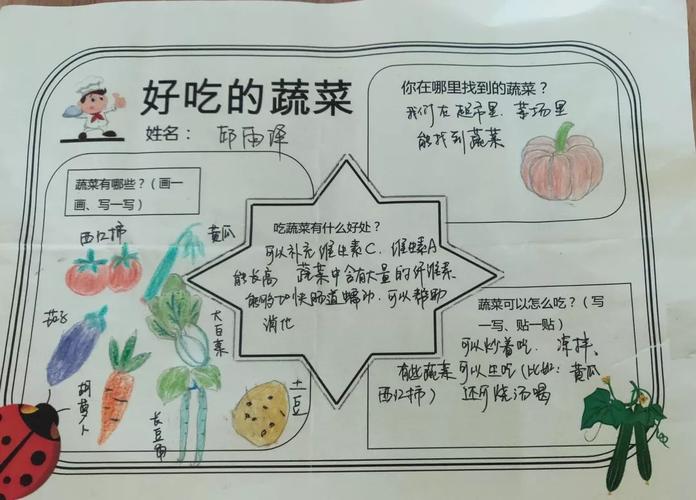 好吃的蔬菜
姓名：邱雨泽
你在哪里找到的蔬菜？
我们在超市里、菜场里
能找到蔬菜
蔬菜有哪些？（画一
画、写一写）
西红柿
黄瓜
茄子
大白菜
胡萝卜
长豆角
土豆
吃蔬菜有什么好处？
可以补充维生素C、维生素A
能长高 蔬菜中含有大量的纤维素
能够加快肠道蠕动，可以帮助
消化
蔬菜可以怎么吃？（写
一写、贴一贴）
可以炒着吃、凉拌、
有些蔬菜可以生吃（比如：黄瓜
西红柿） 还可烧汤喝